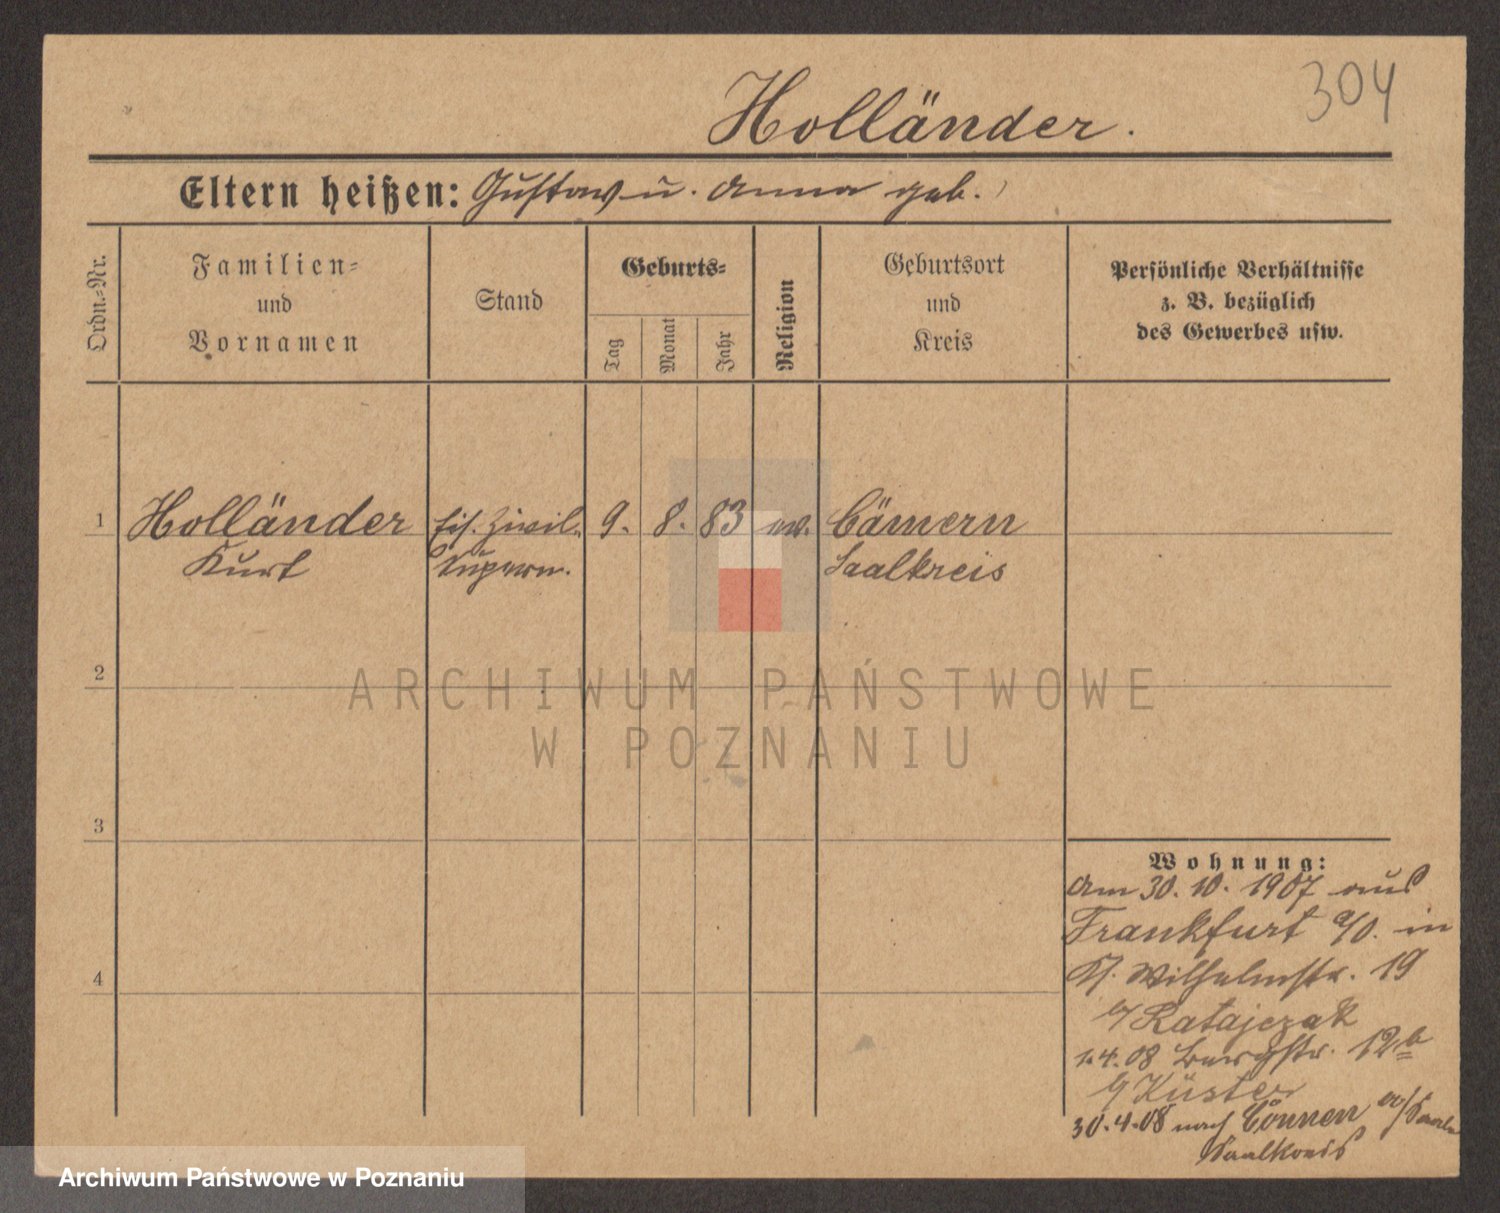 304
Holländer.
Eltern heißen: Gustav u. Anna geb.
Ordn.-Nr.
Familien-
und
Vornamen
Stand
Geburts-
Tag
Monat
Jahr
Religion
Geburtsort
und
Kreis
Persönliche Verhältnisse
z. B. bezüglich
des Gewerbes usw.
1 Holländer Eis. Zivil- 9. 8. 83 ev. Cömern
Kurt Supern. Saalkreis
2
3
4
Wohnung:
Am 30. 10. 1907 aus
Frankfurt a/O. in
Wilhelmstr. 19
b/ Ratajczak
1.4.08 Burgstr. 12b
b/ Küster
30.4.08 nach Cönnern a/Saale
Saalkreis
ARCHIWUM PAŃSTWOWE
W POZNANIU
Archiwum Państwowe w Poznaniu